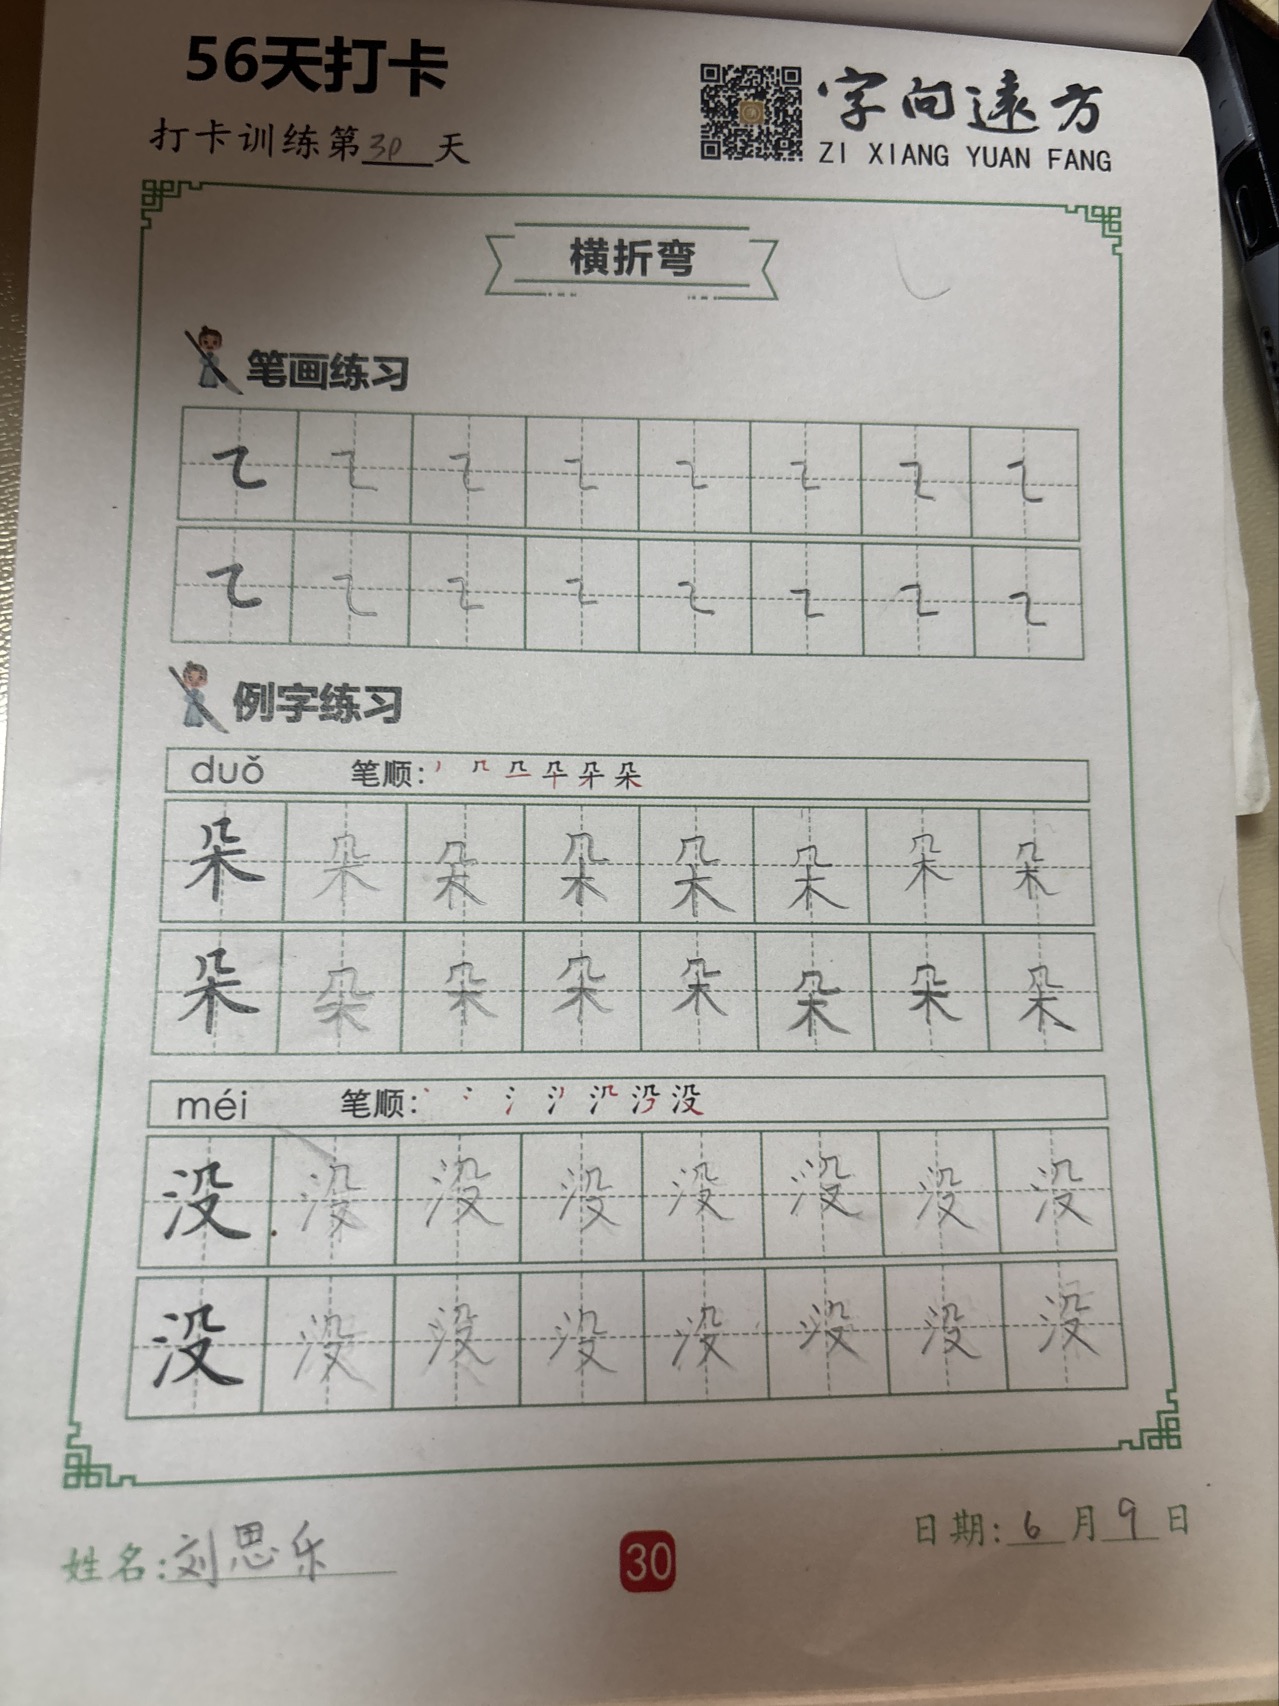 56天打卡
字向远方
打卡训练第30天
ZI XIANG YUAN FANG
横折弯
笔画练习
例字练习
duǒ 笔顺:
朵 朵 朵 朵 朵 朵 朵 朵
朵 朵 朵 朵 朵 朵 朵 朵
méi 笔顺:
没 没 没 没 没 没 没 没
没 没 没 没 没 没 没 没
姓名:刘思乐
30
日期:6月9日